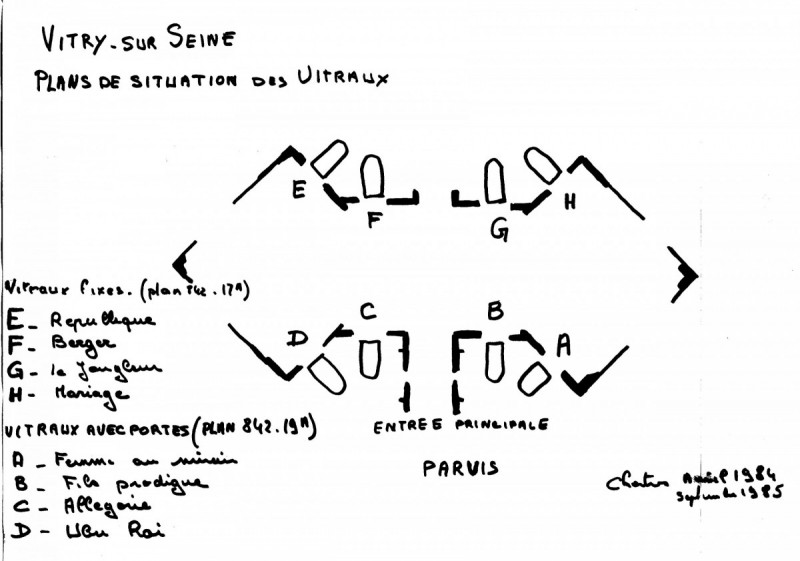 VITRY-SUR SEINE
PLANS DE SITUATION DES VITRAUX
E
F
G
H
Vitraux fixes. (plan 842.17A)
E - Republique
F - Berger
G - le Jongleur
H - Mariage
D
C
B
A
VITRAUX AVEC PORTES (PLAN 842.19A)
A - Femme au miroir
B - Fils prodigue
C - Allegorie
D - Ubu Roi
ENTREE PRINCIPALE
PARVIS
Chartres Avril 1984
Septembre 1985